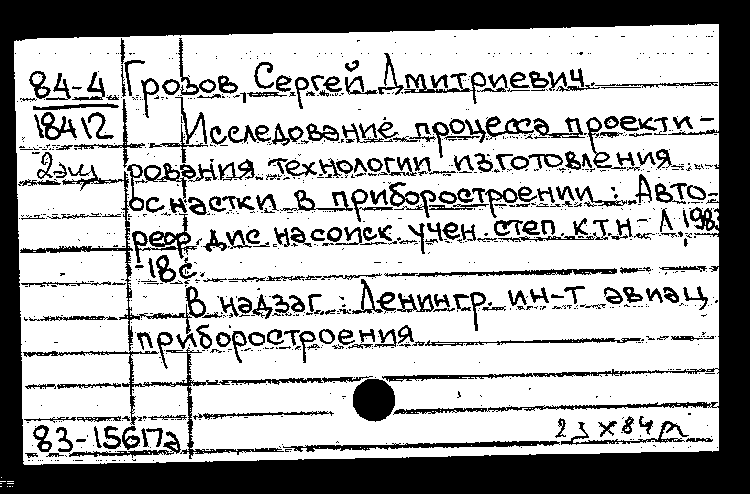 84-4 Грозов, Сергей Дмитриевич.
18412 Исследование процесса проекти-
2экз рования технологии изготовления
оснастки в приборостроении : Авто-
реф. дис. на соиск. учен. степ. к.т.н - Л, 1983
-18 с.
В надзаг : Ленингр. ин-т авиац.
приборостроения
83-15617а